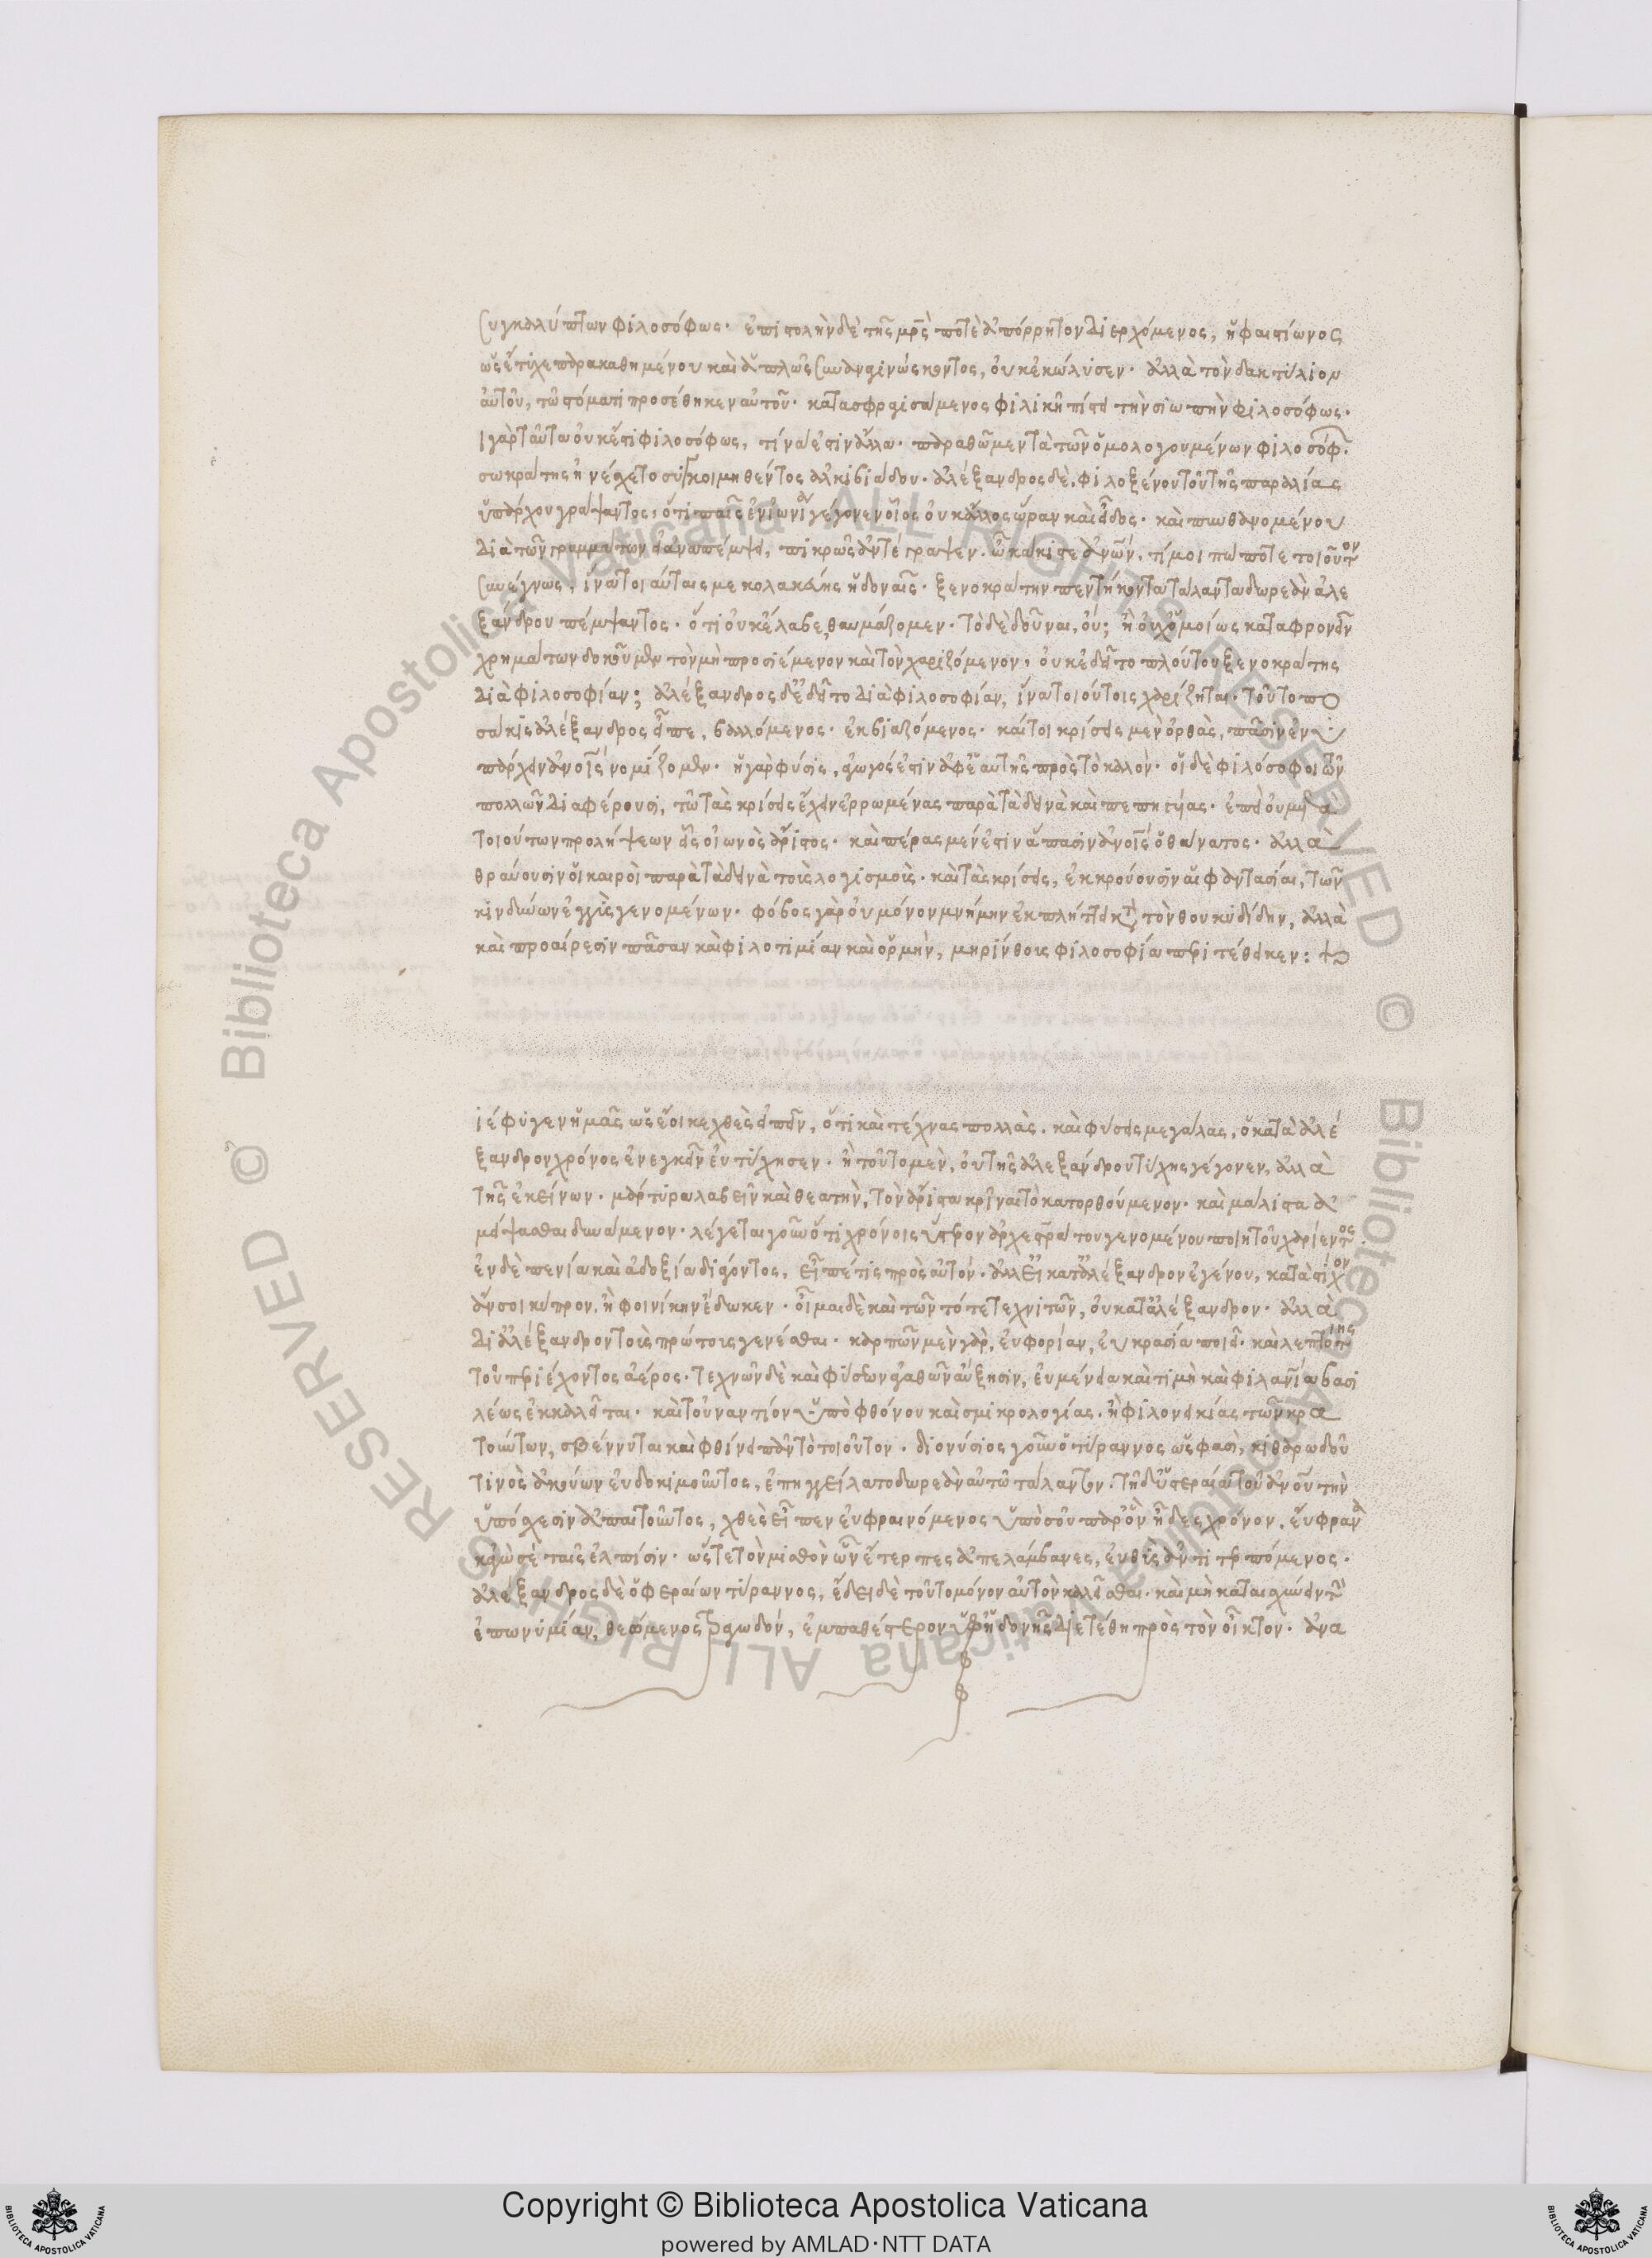 συγκαλύπτων φιλοσόφως· ἐπιστολὴν δὲ τῆς μρ̅ς ποτὲ ἀπόρρητον διερχόμενος, ἡφαιστίωνος
ὡς ἔτυχε παρακαθημένου καὶ ἁπλῶς συναναγινώσκοντος, οὐκ ἐκώλυσεν· ἀλλὰ τὸν δακτύλιον
αὐτοῦ, τῷ στόματι προσέθηκεν αὐτοῦ· κατασφραγισάμενος φιλικῇ πίστει τὴν σιωπὴν φιλοσόφως·
ι γὰρ ταῦτα οὐκ ἔστι φιλοσόφως, τίνα ἐστιν ἄλλα· παραθῶμεν τὰ τῶν ὁμολογουμένων φιλοσόφ
σωκράτης ἠνέσχετο συγκοιμηθέντος ἀλκιβιάδου· ἀλέξανδρος δὲ, φιλοξένου τοῦ τῆς παραλίας
ὑπάρχου γράψαντος, ὅτι παῖς ἐν ἰωνίᾳ γέγονεν οἷος οὐκ ἄλλος ὥραν καὶ εἶδος· καὶ πυνθανομένου
διὰ τῶν γραμμάτων εἰ ἀναπέμψει, πικρῶς ἀντέγραψεν· ὦ κάκιστε ἀνων, τί μοι πώποτε τοιοῦτον
συνέγνως, ἵνα τοιαύταις με κολακεύσῃς ἡδοναῖς· ξενοκράτην πεντήκοντα τάλαντα δωρεὰν ἀλε
ξάνδρου πέμψαντος· ὅτι οὐκ ἔλαβε, θαυμάζομεν· τὸ δὲ δοῦναι, οὔ; ἢ οὐχ ὁμοίως καταφρονεῖν
χρημάτων δοκοῦμεν τὸν μὴ προσιέμενον καὶ τὸν χαριζόμενον, οὐκ ἐδεῖτο πλούτου ξενοκράτης
διὰ φιλοσοφίαν; ἀλέξανδρος δὲ ἐδεῖτο διὰ φιλοσοφίαν, ἵνα τοιούτοις χαρίζηται· τοῦτο πο
σάκις ἀλέξανδρος εἶπε, βαλλόμενος· ἐκβιαζόμενος· καίτοι κρίσεις μὲν ὀρθὰς, πᾶσιν ἐνυ
πάρχειν ἀνοις νομίζομεν· ἡ γὰρ φύσις, ἀγωγός ἐστιν ἀφ' ἑαυτῆς πρὸς τὸ καλόν· οἱ δὲ φιλόσοφοι τῶν
πολλῶν διαφέρουσι, τῷ τὰς κρίσεις ἔχειν ἐρρωμένας παρὰ τὰ δεινὰ καὶ πεπηγυίας· ἐπεὶ οὐ μετὰ
τοιούτων προλήψεων εἷς οἰωνὸς ἄριστος· καὶ πέρας μέν ἐστιν ἅπασιν ἀνοις ὁ θάνατος· ἀλλὰ
θραύουσιν οἱ καιροὶ παρὰ τὰ δεινὰ τοὺς λογισμούς· καὶ τὰς κρίσεις, ἐκκρούουσιν αἱ φαντασίαι, τῶν
κινδύνων ἐγγὺς γενομένων· φόβος γὰρ οὐ μόνον μνήμην ἐκπλήττει κατὰ τὸν θουκυδίδην, ἀλλὰ
καὶ προαίρεσιν πᾶσαν καὶ φιλοτιμίαν καὶ ὁρμὴν, μηρίνθους φιλοσοφία περιτέθεικεν:
ιέφυγεν ἡμᾶς ὡς ἔοικε χθὲς εἰπεῖν, ὅτι καὶ τέχνας πολλὰς, καὶ φύσεις μεγάλας, ὁ κατὰ ἀλέ
ξανδρον χρόνος ἐνεγκεῖν εὐτύχησεν· ἢ τοῦτο μὲν, οὐ τῆς ἀλεξάνδρου τύχης γέγονεν, ἀλλὰ
τῆς ἐκείνων· μάρτυρα λαβεῖν καὶ θεατὴν, τὸν ἄριστα κρῖναι τὸ κατορθούμενον· καὶ μάλιστα ἀ
μείψασθαι δυνάμενον· λέγεται γοῦν ὅτι χρόνοις ὕστερον ἀρχεστράτου γενομένου ποιητοῦ χαρίεντος·
ἐν δὲ πενίᾳ καὶ ἀδοξίᾳ διάγοντος, εἶπέ τις πρὸς αὐτόν· ἀλλ' εἰ κατ' ἀλέξανδρον ἐγένου, κατὰ στίχον
ἄν σοι κύπρον, ἢ φοινίκην ἔδωκεν· οἶμαι δὲ καὶ τῶν τότε τεχνιτῶν, οὐ κατ' ἀλέξανδρον· ἀλλὰ
δι' ἀλέξανδρον τοὺς πρώτους γενέσθαι· καρπῶν μὲν γὰρ, εὐφορίαν, εὐκρασία ποιεῖ· καὶ λεπτότης
τοῦ περιέχοντος ἀέρος· τεχνῶν δὲ καὶ φύσεων ἀγαθῶν αὔξησιν, εὐμένεια καὶ τιμὴ καὶ φιλανία βασι
λέως ἐκκαλεῖται· καὶ τοὐναντίον ὑπὸ φθόνου καὶ σμικρολογίας, ἢ φιλονεικίας τῶν κρα
τούντων, σβέννυται καὶ φθίνει πᾶν τὸ τοιοῦτον· διονύσιος γοῦν ὁ τύραννος ὥς φασι, κιθαρωδοῦ
τινὸς ἀκούων εὐδοκιμοῦντος, ἐπηγγείλατο δωρεὰν αὐτῷ τάλαντον· τῇ δ' ὑστεραίᾳ τοῦ ἀνου τὴν
ὑπόσχεσιν ἀπαιτοῦντος, χθὲς εἶπεν εὐφραινόμενος ὑπὸ σοῦ παρ' ὃν ᾖδες χρόνον, εὔφρανα
κἀγὼ σὲ ταῖς ἐλπίσιν· ὥστε τὸν μισθὸν ὧν ἔτερπες ἀπελάμβανες, εὐθὺς ἀντιτερπόμενος·
ἀλέξανδρος δὲ ὁ φεραίων τύραννος, ἔδει δὲ τοῦτο μόνον αὐτὸν καλεῖσθαι· καὶ μὴ καταισχύνειν τὴν
ἐπωνυμίαν, θεώμενος τραγωδόν, ἐμπαθέστερον ὑφ' ἡδονῆς διετέθη πρὸς τὸν οἶκτον· ἀνα
Copyright © Biblioteca Apostolica Vaticana
powered by AMLAD·NTT DATA